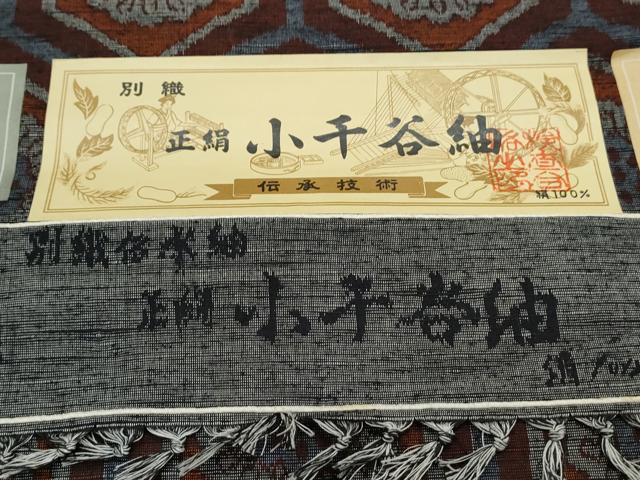 別織
正絹 小千谷紬
伝承技術
絹100%
別織伝承紬
正絹 小千谷紬
絹100%